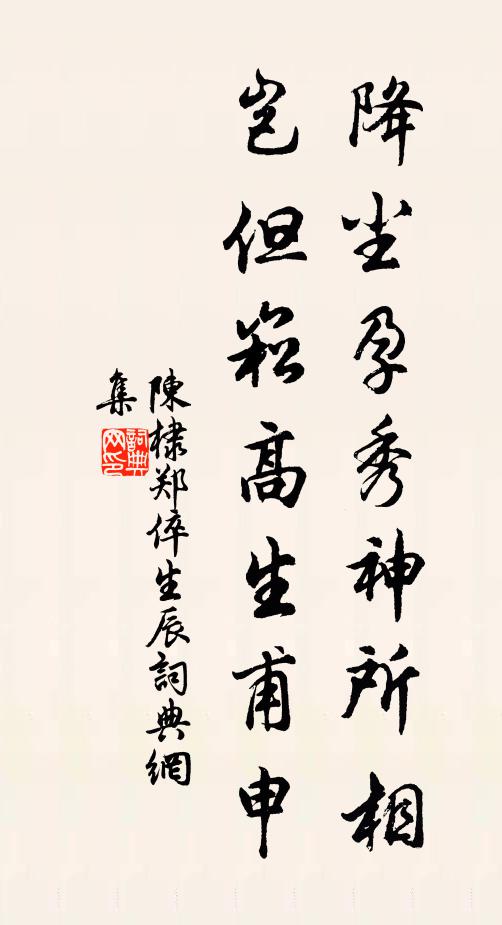 降尘孕秀神所相
岂但崧高生甫申
陳棣郑倅生辰詞典網
集
詞典
网印